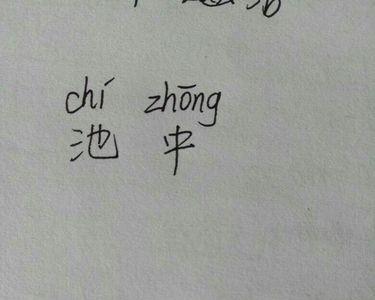 chí zhōng
池中